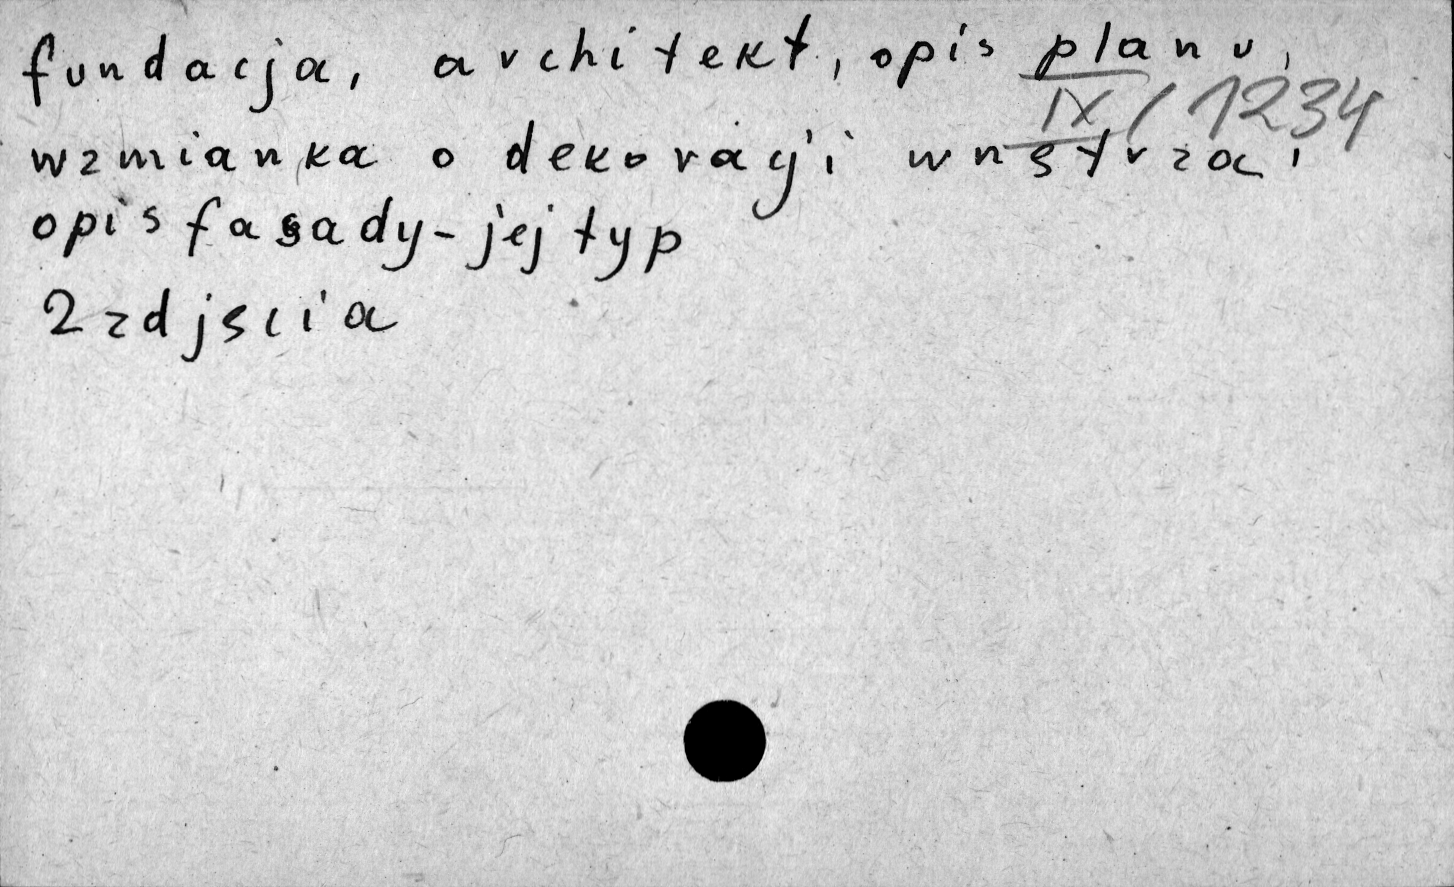 fundacja, architekt, opis planu,
IX/1234
wzmianka o dekoracji wnętrza,
opis fasady - jej typ
2 zdjścia